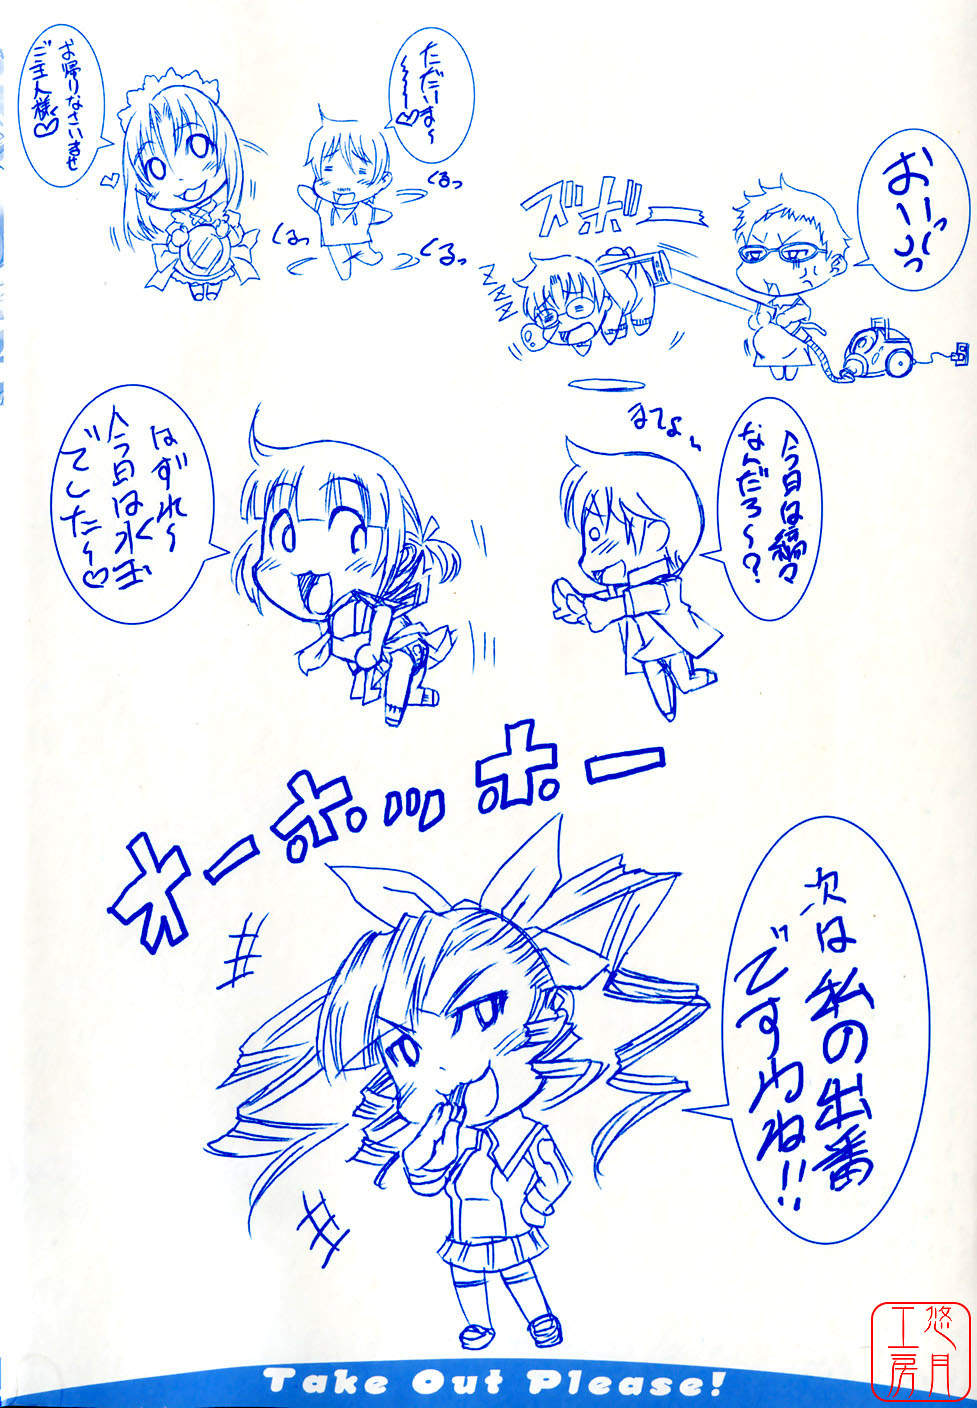 お帰りなさいませ
ご主人様♡
ただいま〜
〜〜〜♡
くるっ
くるっ
くるっ
おいっっ
ズボーー
ZZZZ
まてよ〜
今日は縞々
なんだろ〜?
はずれ〜
今日は水玉
でした〜♡
オーホッホー
次は私の出番
ですわね!!
Take Out Please!
悠月
工房